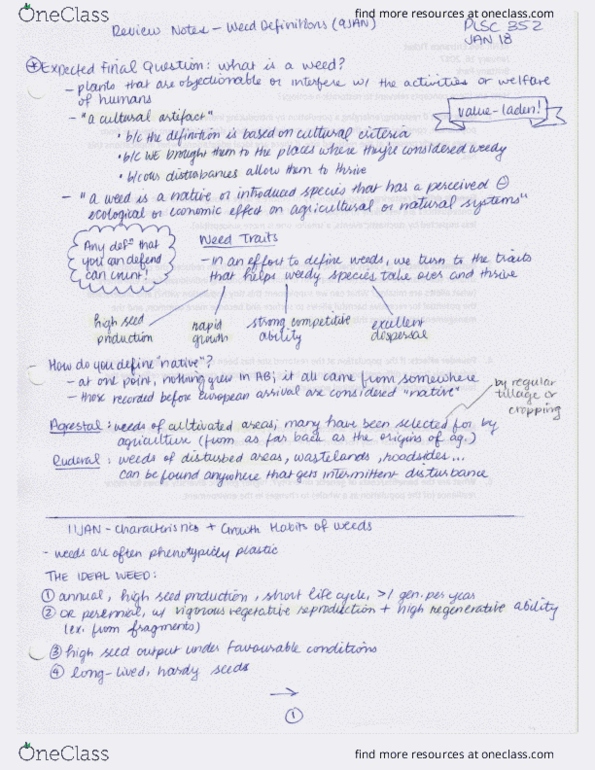 OneClass
find more resources at oneclass.com
Review Notes - Weed Definitions (9JAN)
PLSC 352
JAN 18
* Expected Final Question: what is a weed?
- plants that are objectionable or interfere w/ the activities or welfare
of humans
- "a cultural artifact"
value-laden!
• b/c the definition is based on cultural criteria
• b/c WE brought them to the places where they're considered weedy
• b/c our disturbances allow them to thrive
- "a weed is a native or introduced species that has a perceived ⊖
ecological or economic effect on agricultural or natural systems"
Any defⁿ that
you can defend
can count!
Weed Traits
- in an effort to define weeds, we turn to the traits
that helps weedy species take over and thrive
high seed
production
rapid
growth
strong competitive
ability
excellent
dispersal
How do you define "native"?
- at one point, nothing grew in AB; it all came from somewhere
- those recorded before european arrival are considered "native"
by regular
tillage or
cropping
Agrestal: weeds of cultivated areas; many have been selected for by
agriculture (from as far back as the origins of ag.)
Ruderal: weeds of disturbed areas, wastelands, roadsides...
can be found anywhere that gets intermittent disturbance
11JAN - Characteristics + Growth Habits of weeds
- weeds are often phenotypicly plastic
THE IDEAL WEED:
① annual, high seed production, short life cycle, >1 gen. per year
② OR perennial, w/ vigorous vegetative reproduction + high regenerative ability
(ex. from fragments)
③ high seed output under favourable conditions
④ long-lived, hardy seeds
→
①
OneClass
find more resources at oneclass.com